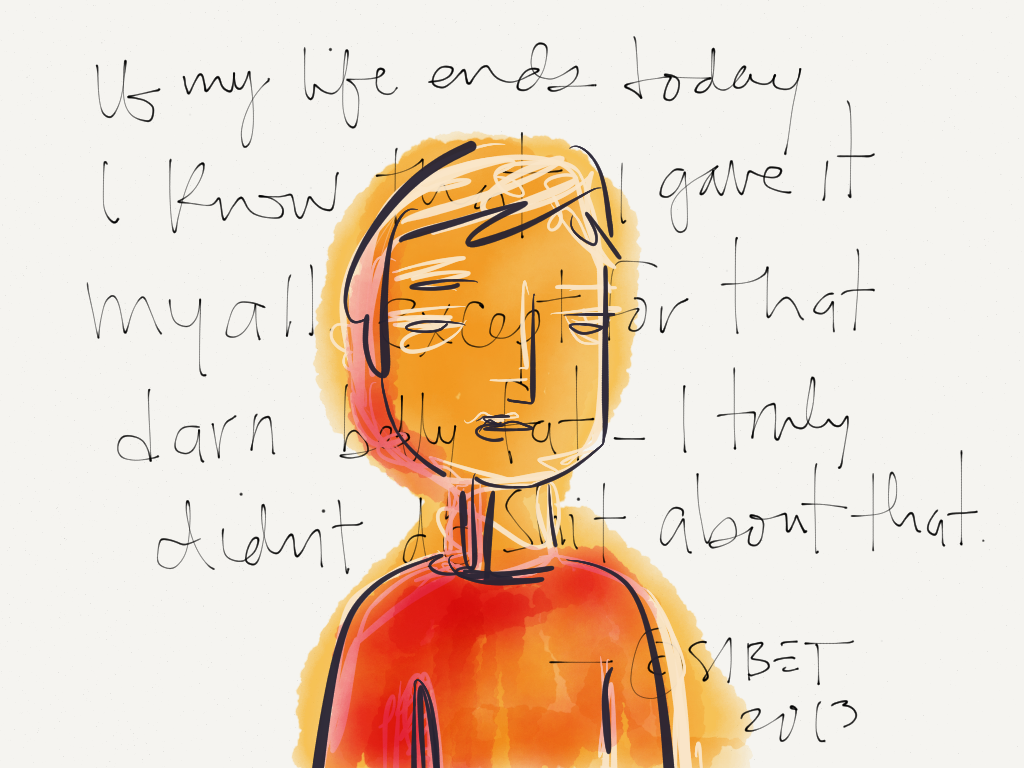 If my life ends today
I know that I gave it
my all, except for that
darn belly fat - I truly
didn't do shit about that.
— © SABET
2013